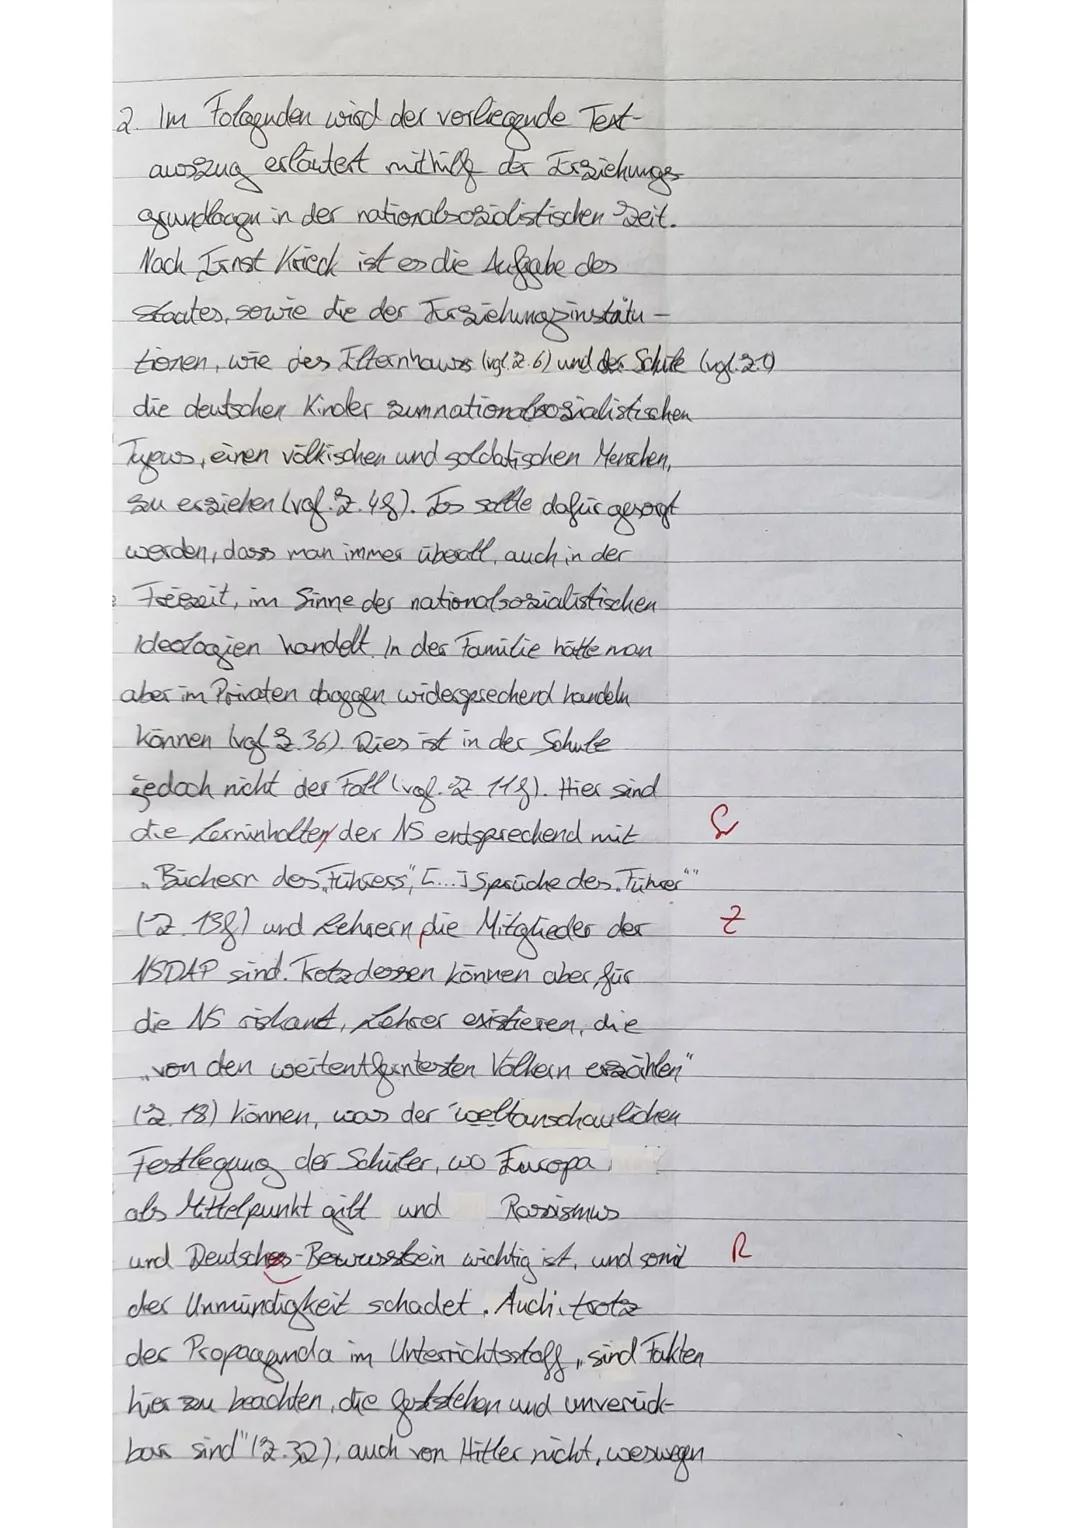 2. Im Folgenden wird der vorliegende Text-
auszug erläutert mithilfe der Erziehungs-
grundlagen in der nationalsozialistischen Zeit.
Nach Ernst Krieck ist es die Aufgabe des
Staates, sowie die der Erziehungsinstitu-
tionen, wie des Elternhauses (vgl. Z. 6) und der Schule (vgl. Z.
die deutschen Kinder zum nationalsozialistischen
Typus, einen völkischen und soldatischen Menschen,
zu erziehen (vgl. Z. 4f). Es sollte dafür gesorgt
werden, dass man immer überall, auch in der
Freizeit, im Sinne der nationalsozialistischen
Ideologien handelt. In der Familie hätte man
aber im Privaten dagegen widersprechend handeln
können (vgl. Z. 36). Dies ist in der Schule
jedoch nicht der Fall (vgl. Z. 11f). Hier sind
die Lerninhalten der NS entsprechend mit
„Büchern des „Führers", [...] Sprüche des „Führer""
(Z. 13f) und Lehrern die Mitglieder der Z
NSDAP sind. Trotzdessen können aber für
die NS riskant, Lehrer existieren, die
„von den weitentferntesten Völkern erzählen"
(Z. 18) können, was der weltanschaulichen
Festlegung der Schüler, wo Europa
als Mittelpunkt gilt und Rassismus
und Deutsches-Bewusstsein wichtig ist, und somit R
der Unmündigkeit schadet. Auch trotz
der Propaganda im Unterrichtsstoff „sind Fakten
hier zu beachten, die feststehen und unverück-
bar sind" (Z. 32), auch von Hitler nicht, weswegen